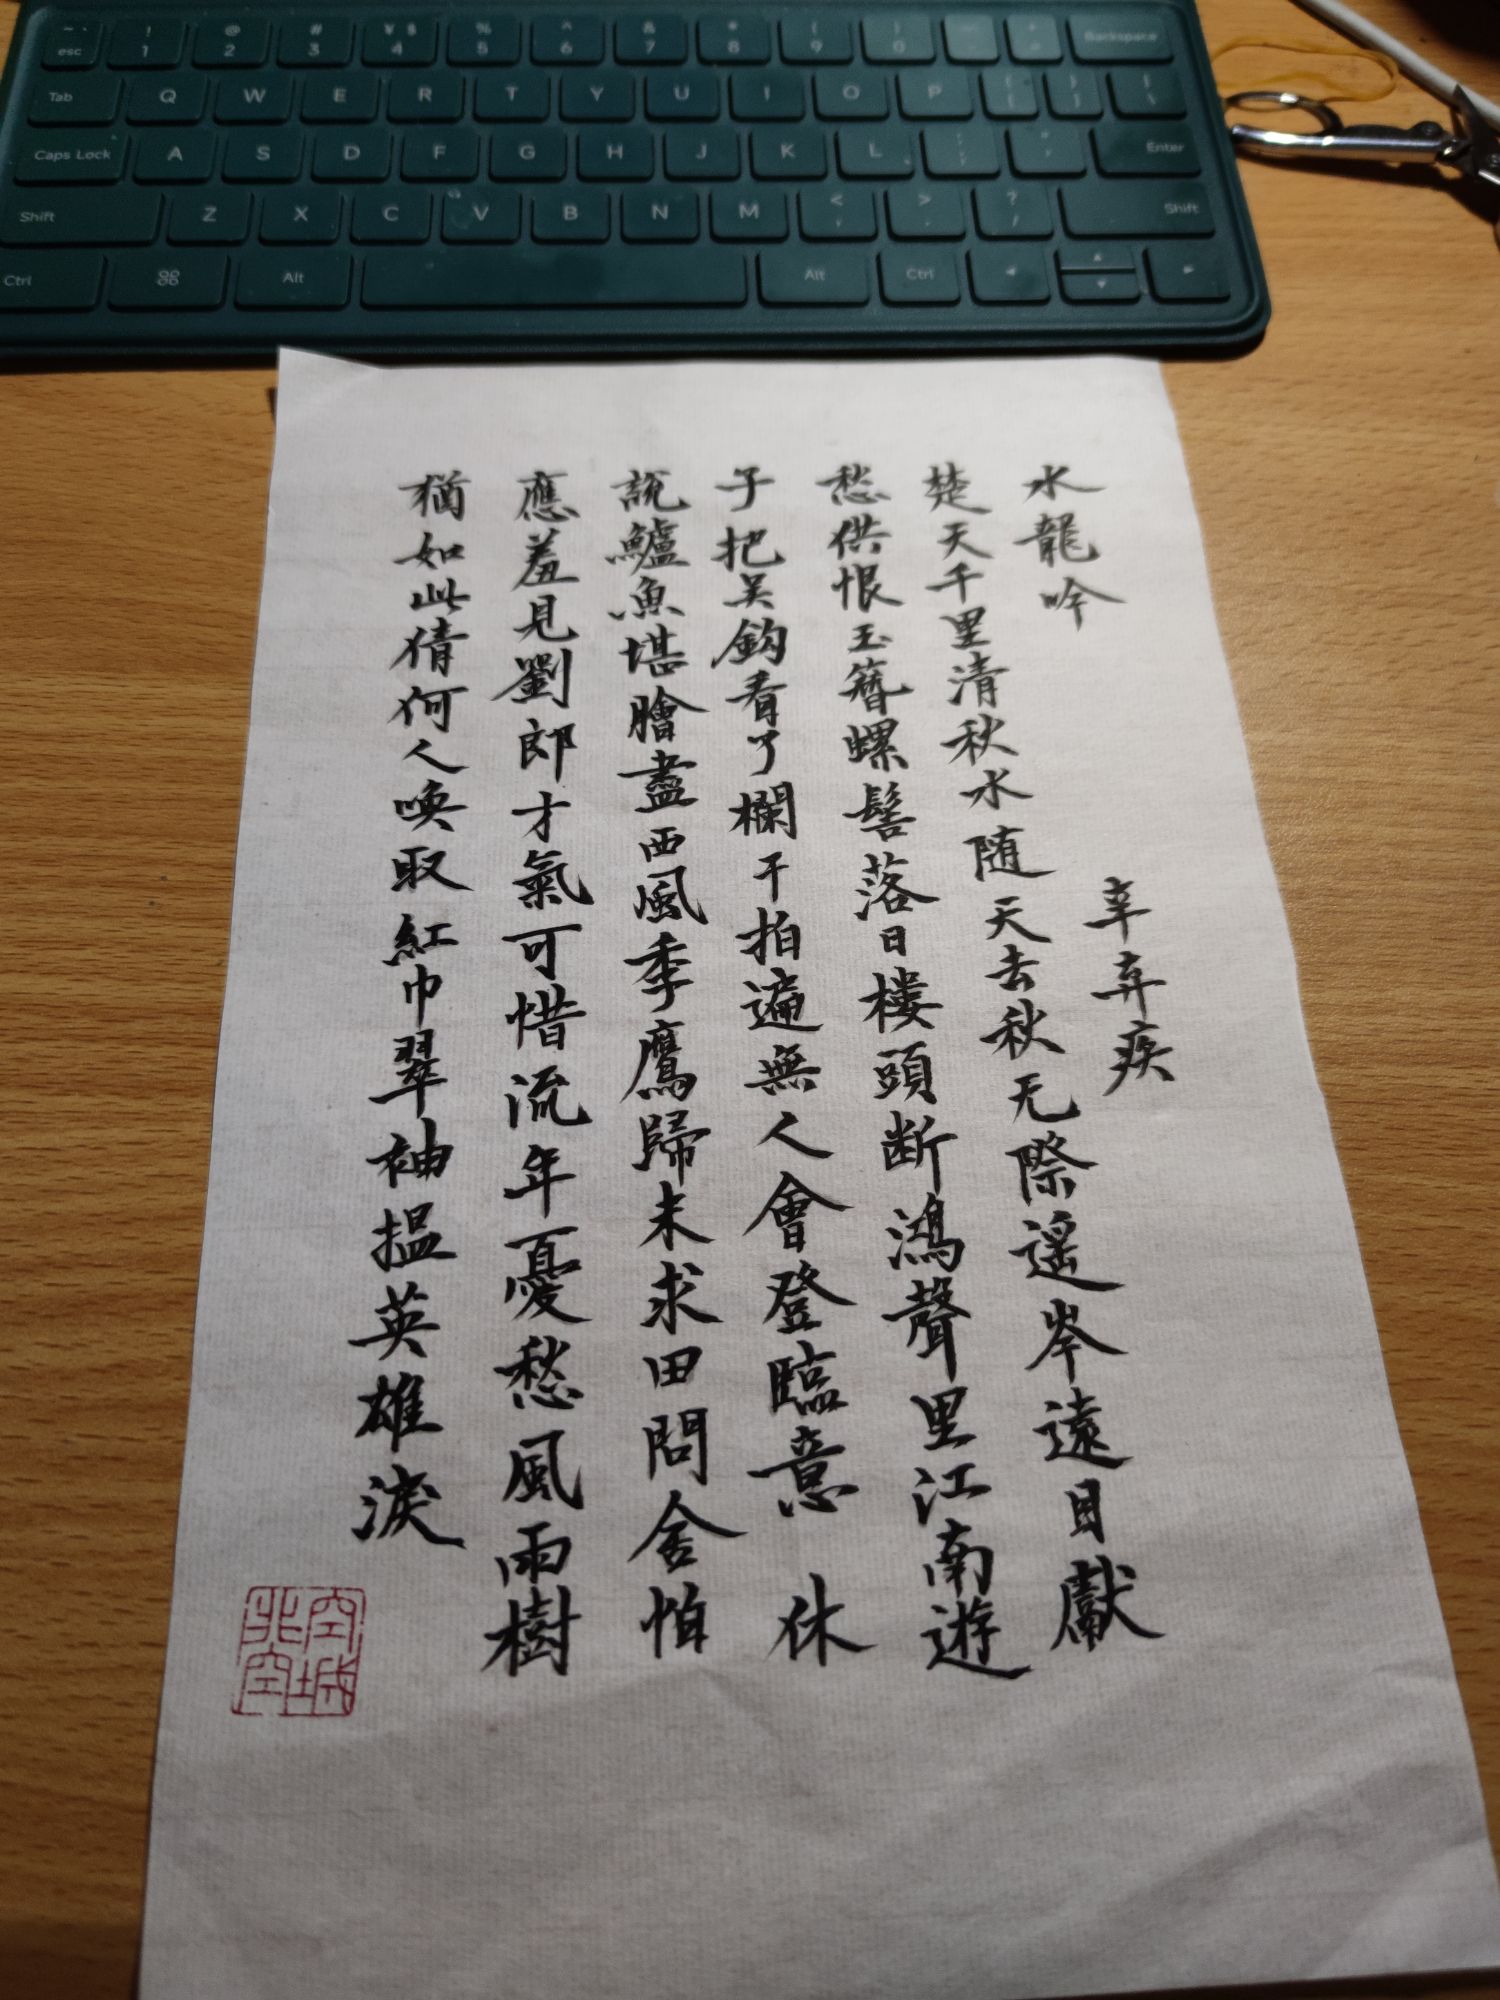 ~ ` ! 1 @ 2 # 3 ¥ $ 4 % 5 ^ 6 & 7 * 8 ( 9 ) 0 Backspace
esc
Tab Q W E R T Y U I O P { [ } ] | \
Caps Lock A S D F G H J K L : ; " ' Enter
Shift Z X C V B N M < , > . ? / Shift
Ctrl ⌘ Alt Alt Ctrl
水龍吟
辛弃疾
楚天千里清秋水随天去秋无際遥岑遠目獻
愁供恨玉簪螺髻落日楼頭断鴻聲里江南遊
子把吴鈎看了欄干拍遍無人會登臨意 休
說鱸魚堪膾盡西風季鷹歸未求田問舍怕
應羞見劉郎才氣可惜流年憂愁風雨樹
猶如此倩何人喚取紅巾翠袖搵英雄淚
空城
空